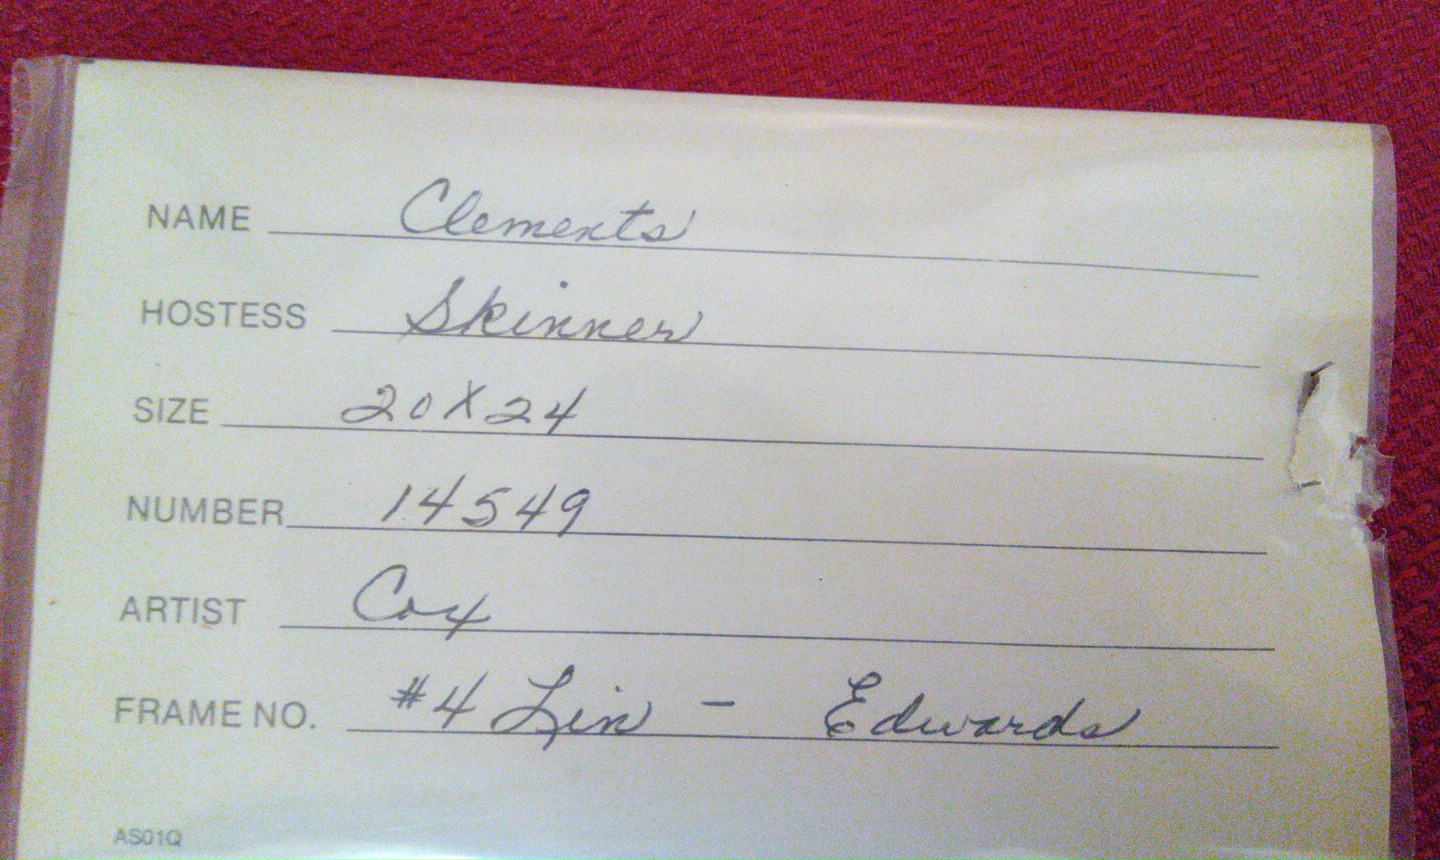 NAME Clements
HOSTESS Skinner
SIZE 20X24
NUMBER 14549
ARTIST Cox
FRAME NO. #4 Lin - Edwards
AS01Q